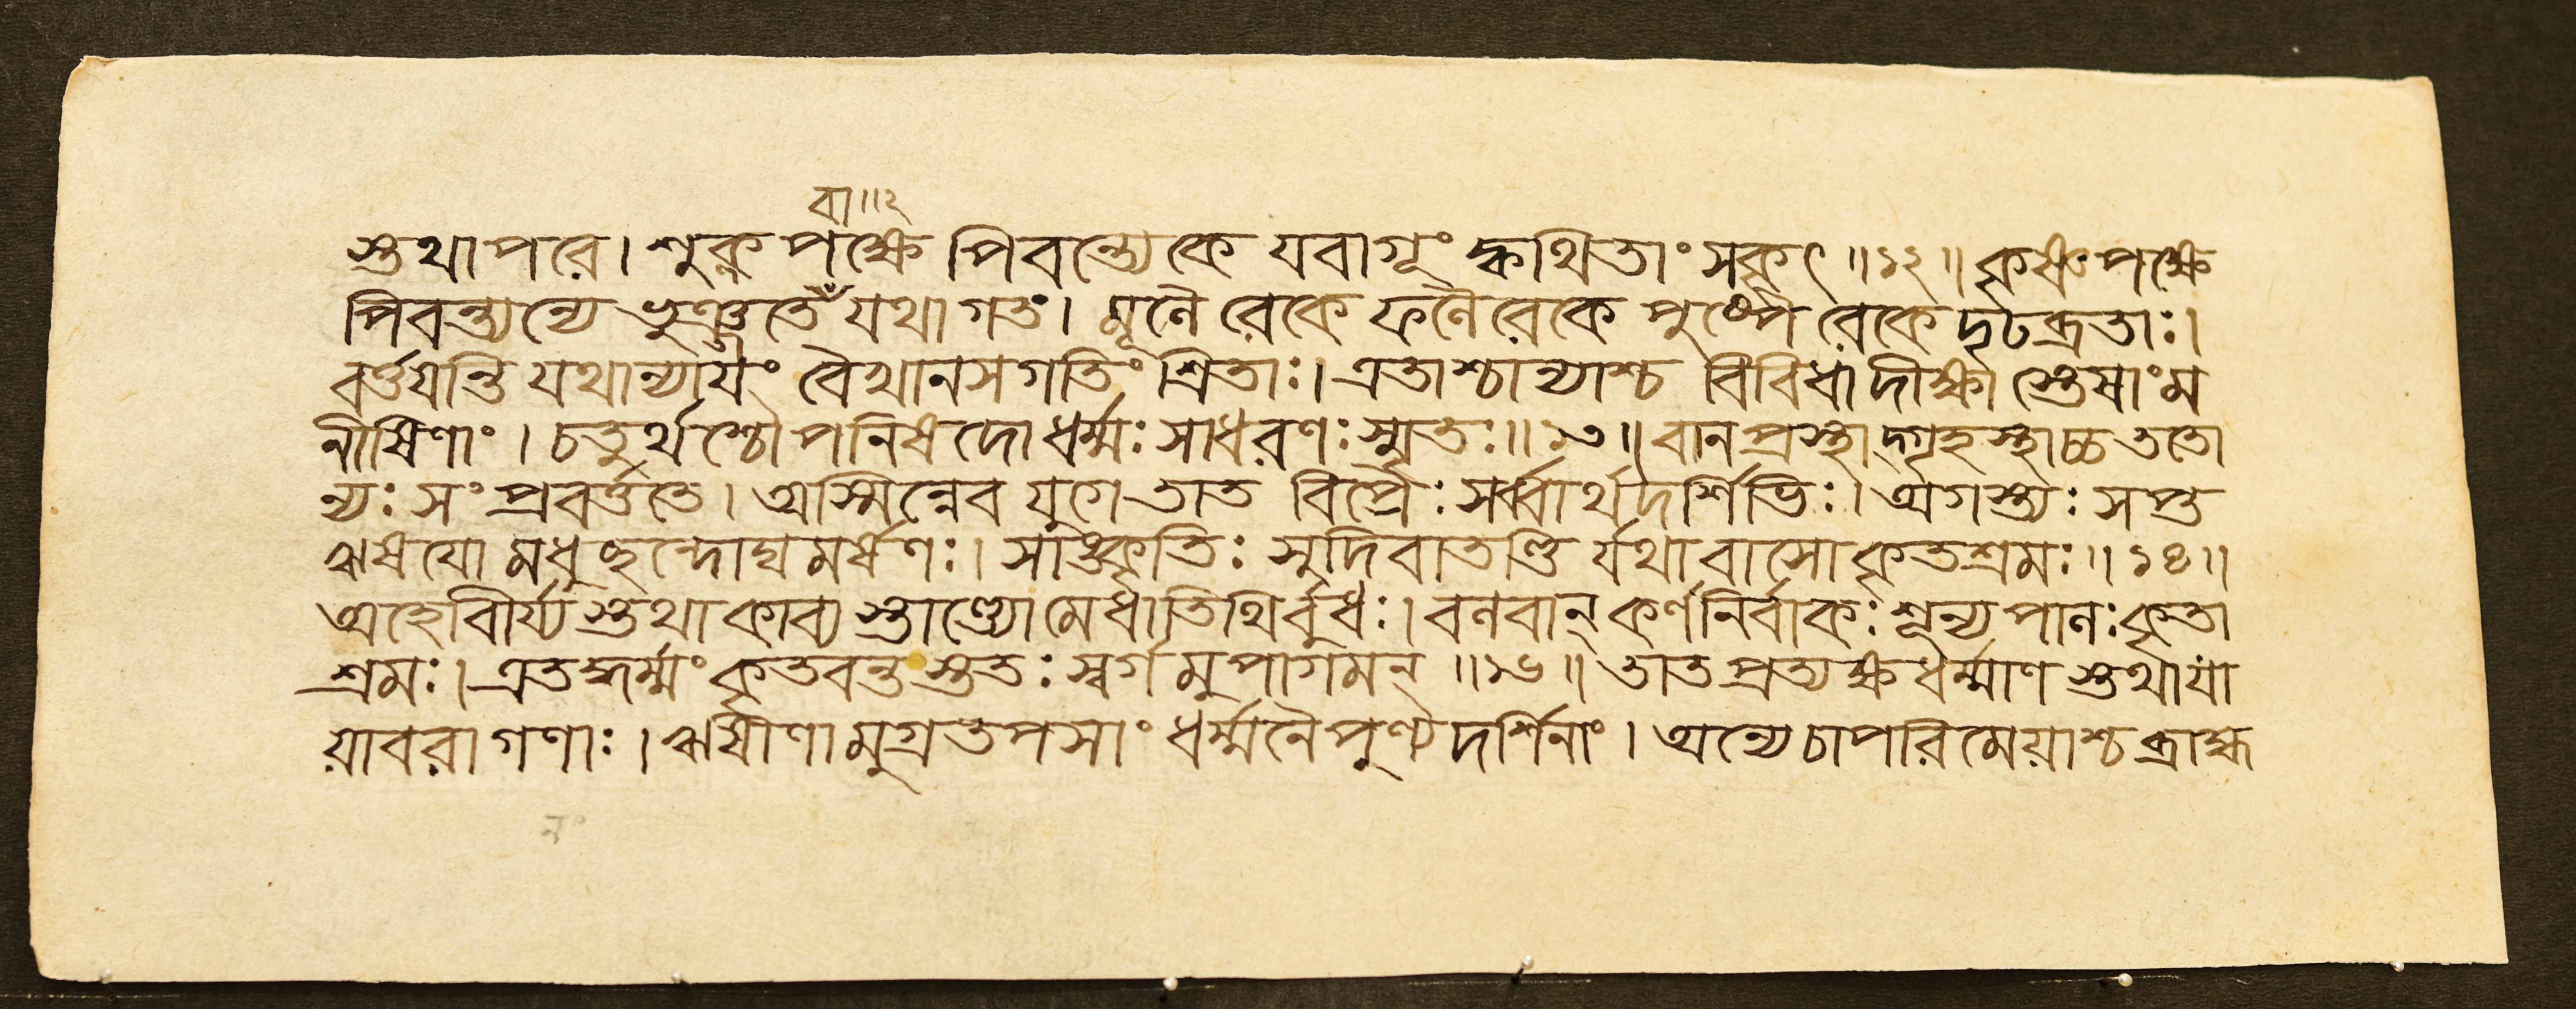 বা॥২
স্তথাপরে। শুক্লপক্ষে পিবন্ত্যেকে যবাগূং ক্বথিতাং সকৃৎ॥১২॥ কৃষ্ণপক্ষে
পিবন্ত্যন্যে ভুঞ্জতে যথাগতং। মূলৈরেকে ফলৈরেকে পুষ্পৈরেকে দৃঢব্রতাঃ।
বর্ত্তয়ন্তি যথান্যায়ং বৈখানসগতিং শ্রিতাঃ। এতাশ্চান্যাশ্চ বিবিধা দীক্ষাস্তেষাং ম
নীষিণাং। চতুর্থশ্চৌপনিষদো ধর্ম্মঃ সাধরণঃ স্মৃতঃ॥১৩॥ বানপ্রস্থাদ্গৃহস্থাচ্চ ততো
ন্যঃ সংপ্রবর্ত্ততে। অস্মিন্নেব যুগে তাত বিপ্রৈঃ সর্ব্বার্থদর্শিভিঃ। অগস্ত্যঃ সপ্ত
ঋষয়ো মধুছন্দোঘমর্ষণঃ। সাঙ্কৃতিঃ সুদিবাতণ্ডির্যথাবাসো কৃতশ্রমঃ॥১৪॥
অহোবীর্য্যস্তথা কাব্যস্তাণ্ড্যো মেধাতিথির্বুধঃ। বলবান্ কর্ণনির্বাকঃ শূন্যপালঃ কৃতা
শ্রমঃ। এতদ্ধর্ম্মং কৃতবন্তস্ততঃ স্বর্গমুপাগমন্॥১৬॥ তাত প্রত্যক্ষধর্ম্মাণস্তথা যা
য়াবরাগণাঃ। ঋষীণামুগ্রতপসাং ধর্ম্মনৈপুণ্যদর্শিনাং। অন্যে চাপরিমেয়াশ্চ ব্রাহ্ম
নং